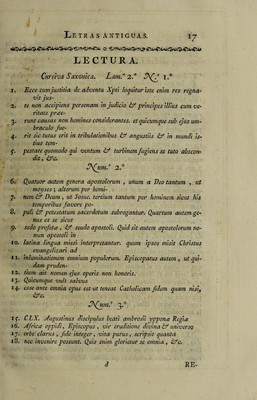 LETRAS ANTIGUAS. 17
LECTURA.
Cursiva Saxonica. Lam.ª 2.ª N.º 1.º
1. Ecce cum justitia de adventu Xpti loquitur iste enim rex regna-
vit jus-
2. te non accipiens personam in judicio & principes illius cum ve-
ritate prae-
3. runt causas non homines considerantes. et quicumque sub ejus um-
braculo fue-
4. rit sic tutus erit in tribulationibus & angustiis & in mundi is-
tius tem-
5. pestate quomodo qui ventum & turbinem fugiens se tuto abscon-
dit, &c.
Num.º 2.º
6. Quatuor autem genera apostolorum, unum a Deo tantum, ut
moyses; alterum per homi-
7. nem & Deum, ut Josue. tertium tantum per hominem sicut his
temporibus favore po-
8. puli & potestatum sacerdotum subrogantur. Quartum autem ge-
nus ex se sicut
9. sedo profetae, & seudo apostoli. Quid sit autem apostolorum no-
men apostoli in
10. latina lingua missi interpretantur. quum ipsos misit Christus
evangelizari ad
11. inluminationem omnium populorum. Episcopatus autem, ut qui-
dam pruden-
12. tium ait nomen ejus operis non honoris.
13. Quicumque vult salvus
14. esse ante omnia opus est ut teneat Catholicam fidem quam nisi,
&c.
Num.º 3.º
15. CLX. Augustinus discipulus beati ambrosii yppona Regiae
16. Africae oppidi, Episcopus, vir eruditione divina & universo
17. orbe clarus, fide integer, vita purus, scripsit quanta
18. nec invenire possunt. Quis enim glorietur se omnia, &c.
d RE-